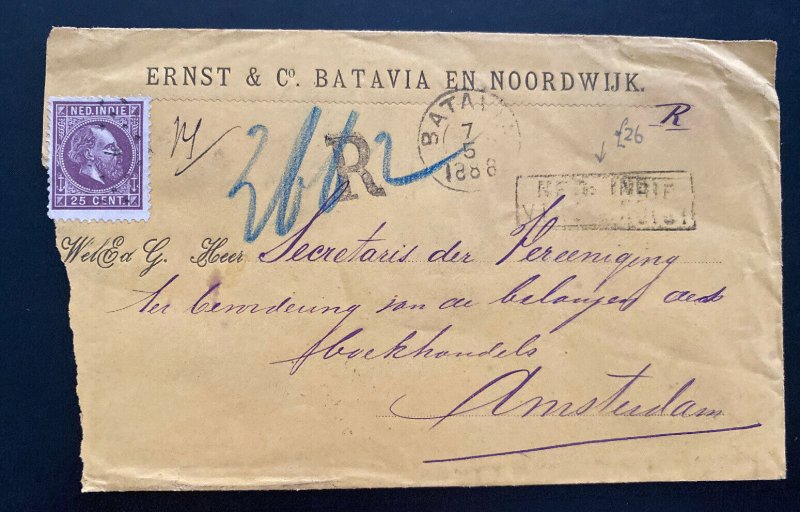 ERNST & Cº. BATAVIA EN NOORDWIJK.
NED. INDIE
25 CENT.
R
BATAVIA
7
5
1888
R
£26
NED. INDIE
WelEd G. Heer Secretaris der Vereeniging
ter bevordering van de belangen des
Boekhandels
Amsterdam